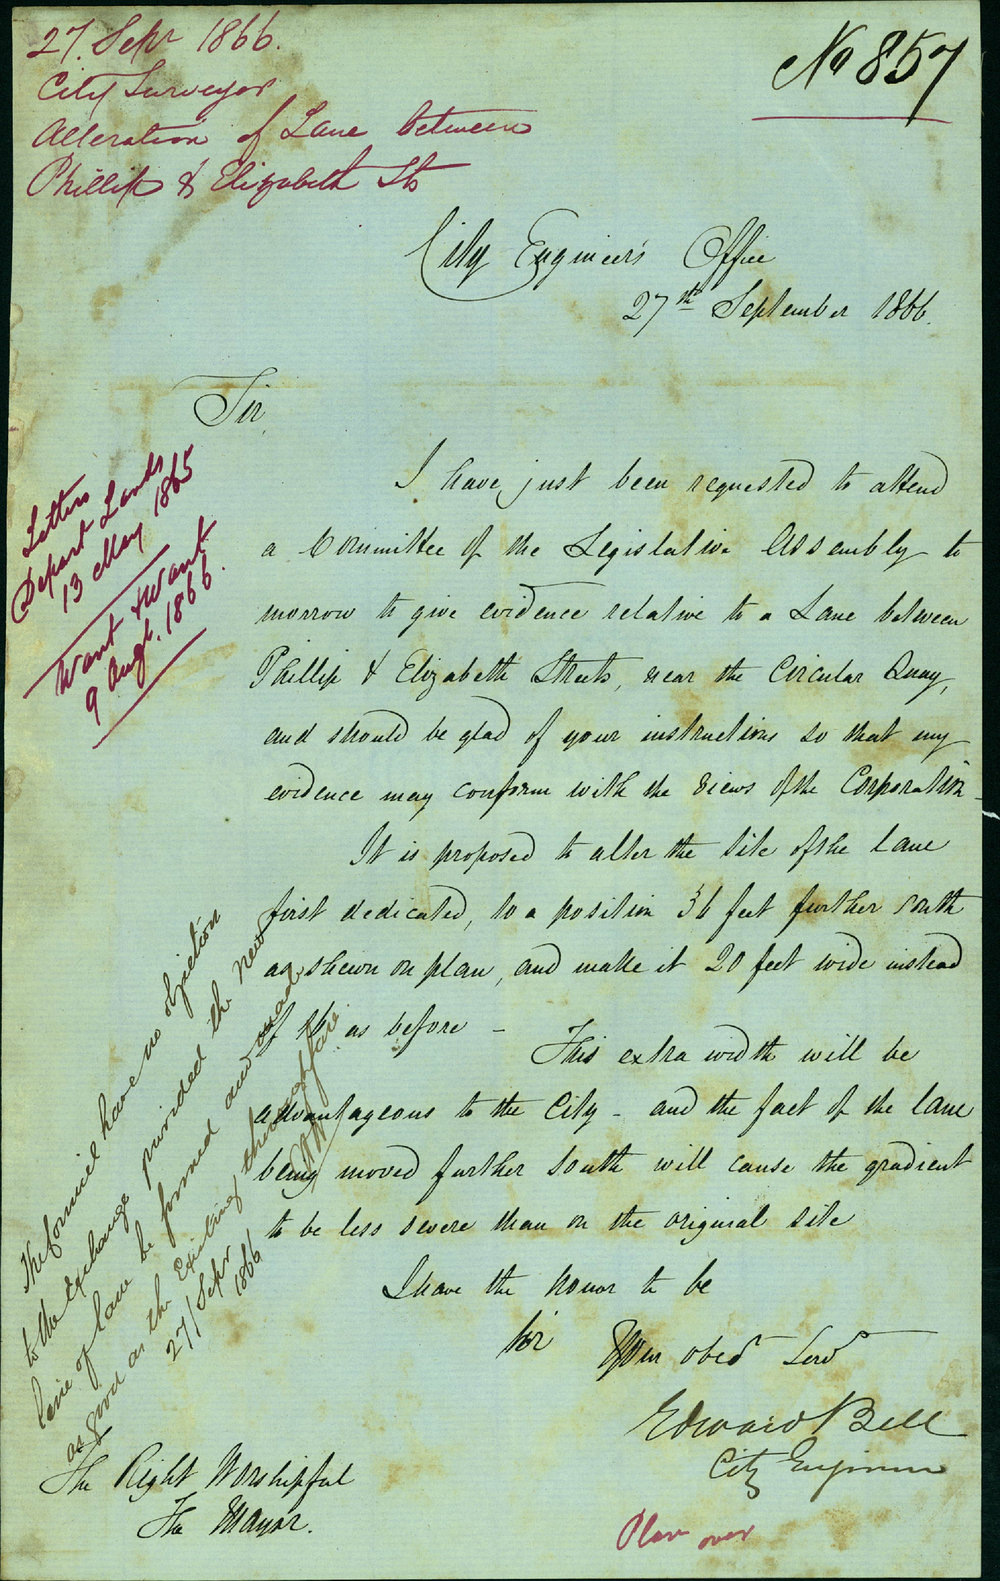 27. Sepr 1866.
City Surveyor
Alteration of Lane between
Phillip & Elizabeth Sts
No 857
City Engineer's Office
27th September 1866.
Sir,
I have just been requested to attend
a Committee of the Legislative Assembly to
morrow to give evidence relative to a Lane between
Phillip & Elizabeth Streets, near the Circular Quay,
and should be glad of your instructions so that my
evidence may conform with the views of the Corporation -
It is proposed to alter the site of the Lane
first dedicated, to a position 36 feet further south
as shewn on plan, and make it 20 feet wide instead
of 16 as before -
This extra width will be
advantageous to the City - and the fact of the lane
being moved further South will cause the gradient
to be less severe than on the original site
I have the honor to be
Sir
Your obed Serv
Edward Bell
City Engineer
The Right Worshipful
The Mayor.
Plan over
Letters
Depart Lands
13 May 1865
Want & Want
9 Augt. 1866.
The Council have no objection
to the exchange provided the new
line of lane be formed and made
as good as the existing thoroughfare
27/Sepr
1866